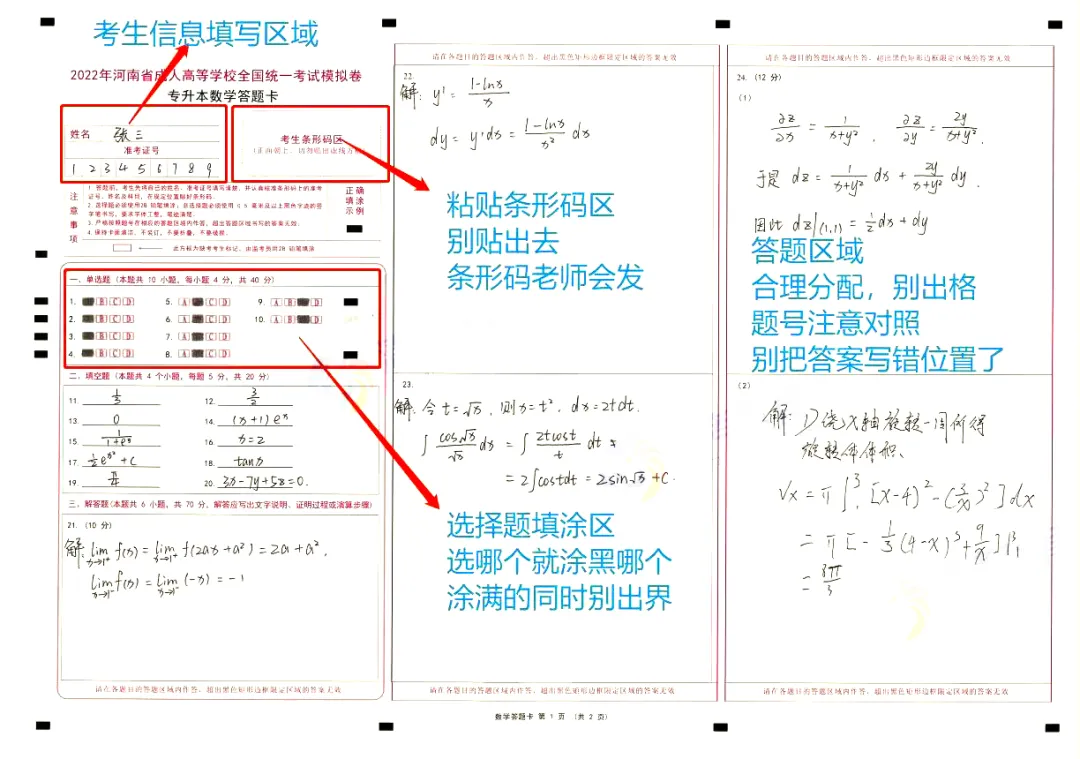 考生信息填写区域
2022年河南省成人高等学校全国统一考试模拟卷
专升本数学答题卡
姓名 张三
准考证号
1 2 3 4 5 6 7 8 9
考生条形码区
注意事项
1. 答题前，考生先将自己的姓名、准考证号填写清楚，并认真核准条形码上的准考
证号、姓名及科目，在规定位置贴好条形码。
2. 选择题必须使用2B 铅笔填涂；非选择题必须使用 0.5 毫米及以上黑色字迹的签
字笔书写，要求字体工整，笔迹清楚。
3. 严格按照题号在相应的答题区域内作答，超出答题区域书写的答案无效。
4. 保持卡面清洁，不装订，不要折叠，不要破损。
正确填涂示例
此方框为缺考考生标记，由监考员用2B 铅笔填涂
一、单选题 (本题共 10 小题，每小题 4 分，共 40 分)
1. B C D 5. A C D 9. A B D
2. B C D 6. A C D 10. A B D
3. B C D 7. A C D
4. B C D 8. A C D
二、填空题 (本题共 4 个小题，每题 5 分，共 20 分)
11. 1/3 12. 3/2
13. 0 14. (x+1)eˣ
15. 16. x=2
17. 18. tanx
19. π/4 20. 3x-7y+5z=0.
三、解答题(本题共 6 小题，共 70 分，解答应写出文字说明、证明过程或演算步骤)
21. (10 分)
解: lim x→1⁺ f(x) = lim x→1⁺ f(2ax+a²) = 2a+a².
lim x→1⁻ f(x) = lim x→1⁻ (-x) = -1
请在各题目的答题区域内作答，超出黑色矩形边框限定区域的答案无效
请在各题目的答题区域内作答，超出黑色矩形边框限定区域的答案无效
22.
解: y' = (1-lnx)/x
dy = y'dx = (1-lnx)/x² dx
粘贴条形码区
别贴出去
条形码老师会发
23.
解: 令 t=√x, 则 x=t². dx=2tdt.
∫ cos√x/√x dx = ∫ 2tcost/t dt
= 2∫costdt = 2sin√x + C.
选择题填涂区
选哪个就涂黑哪个
涂满的同时别出界
请在各题目的答题区域内作答，超出黑色矩形边框限定区域的答案无效
数学答题卡 第 1 页 (共 2 页)
请在各题目的答题区域内作答，超出黑色矩形边框限定区域的答案无效
24. (12 分)
(1)
∂z/∂x = 1/(x+y²) , ∂z/∂y = 2y/(x+y²)
于是 dz = 1/(x+y²) dx + 2y/(x+y²) dy .
因此 dz|(1,1) = ½dx + dy
答题区域
合理分配，别出格
题号注意对照
别把答案写错位置了
(2)
解: D绕X轴旋转一周所得
旋转体体积、
Vx = π∫₁³ [(x-4)² - (3/x)²] dx
= π[-⅓(4-x)³ + 9/x]|³₁
= 8π/3
请在各题目的答题区域内作答，超出黑色矩形边框限定区域的答案无效